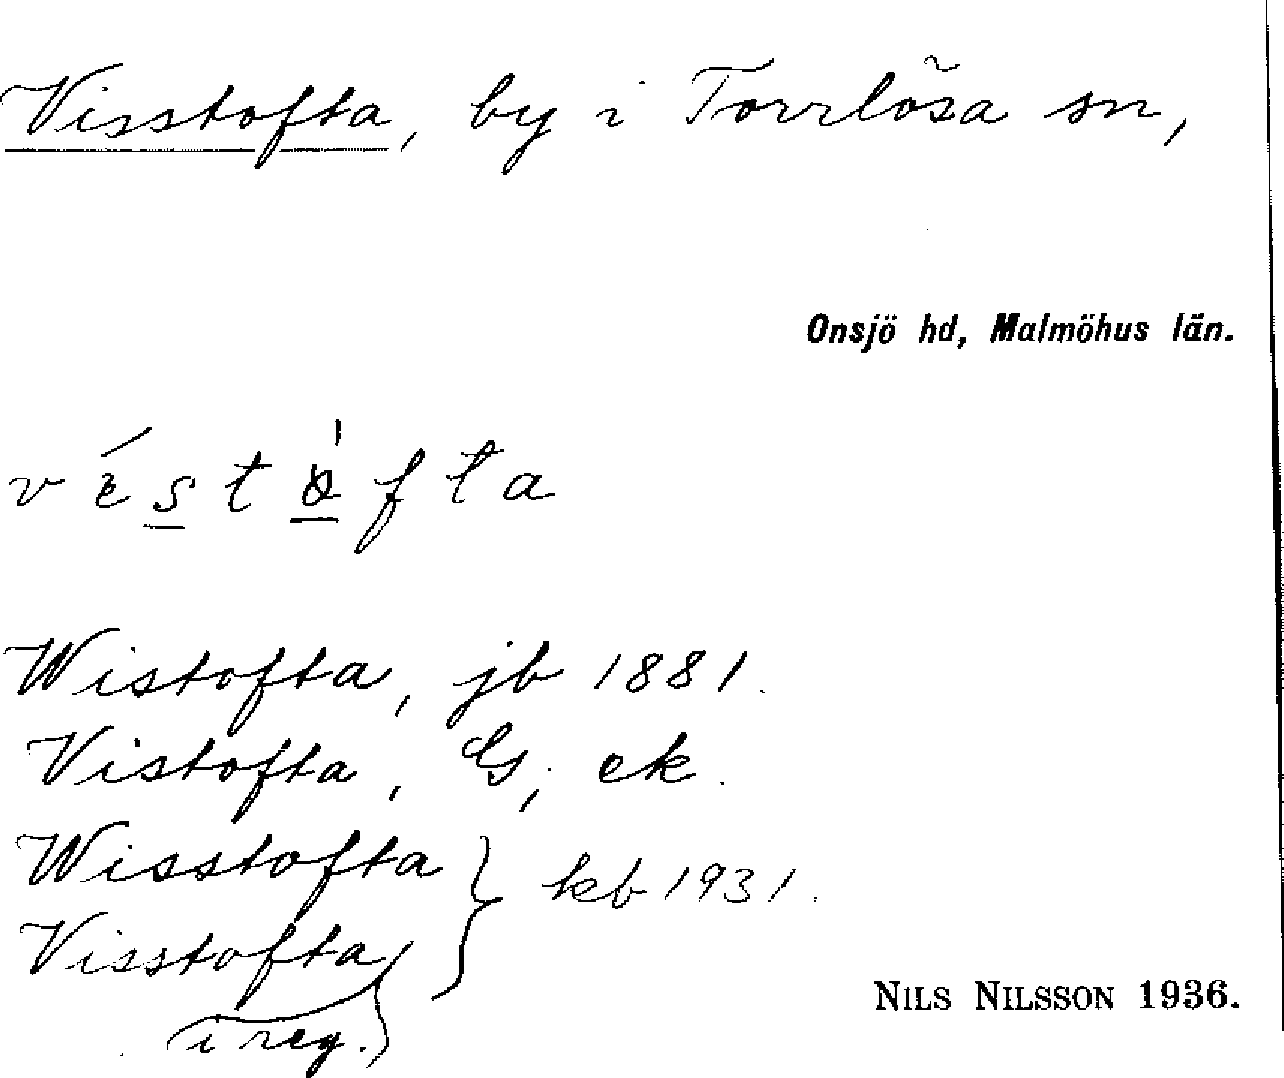 Visstofta, by i Torrlösa sn,
Onsjö hd, Malmöhus län.
véstòfta
Wistofta, jb 1881.
Vistofta, G, ek.
Wisstofta } kb 1931.
Visstofta
(i reg.)
NILS NILSSON 1936.